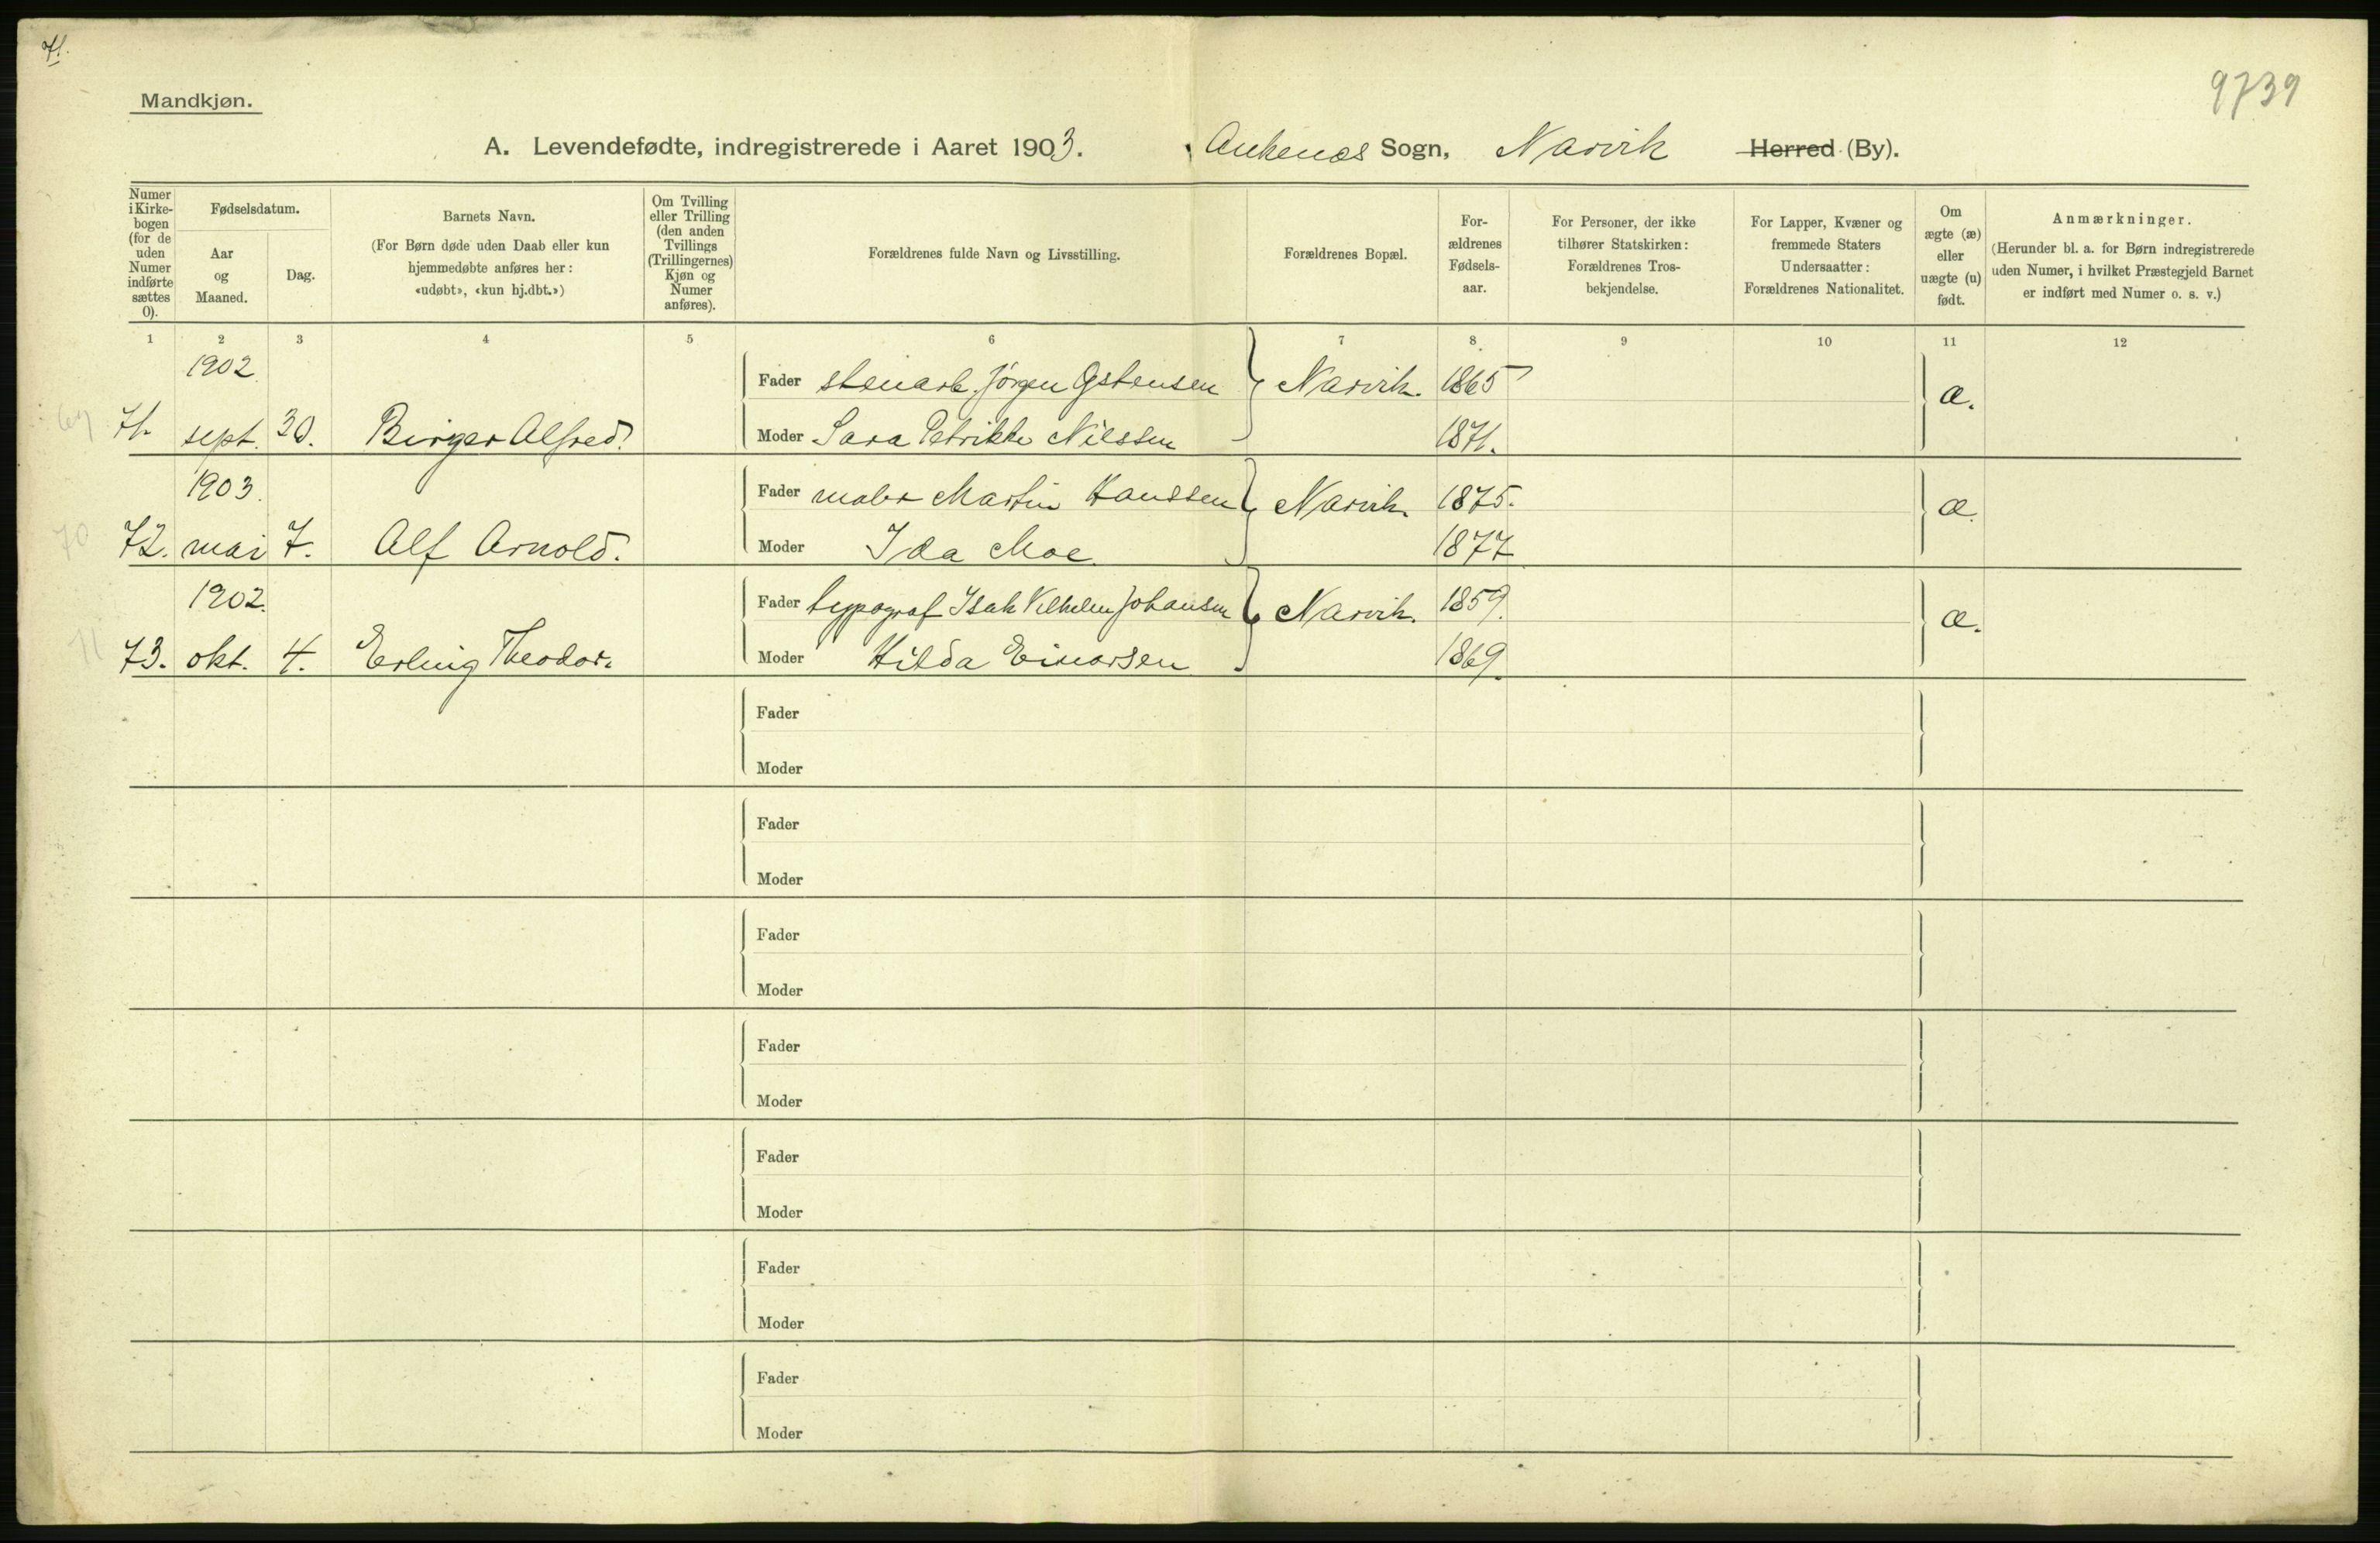 71.
9739
Mandkjøn.
A. Levendefødte, indregistrerede i Aaret 1903. Ankenæs Sogn, Narvik Herred (By).
Numer i Kirkebogen (for de uden Numer indførte sættes 0).
Fødselsdatum.
Aar og Maaned.
Dag.
Barnets Navn.
(For Børn døde uden Daab eller kun hjemmedøbte anføres her: «udøbt», «kun hj.dbt.»)
Om Tvilling eller Trilling (den anden Tvillings (Trillingernes) Kjøn og Numer anføres).
Forældrenes fulde Navn og Livsstilling.
Forældrenes Bopæl.
Forældrenes Fødselsaar.
For Personer, der ikke tilhører Statskirken: Forældrenes Trosbekjendelse.
For Lapper, Kvæner og fremmede Staters Undersaatter: Forældrenes Nationalitet.
Om ægte (æ) eller uægte (u) født.
Anmærkninger.
(Herunder bl. a. for Børn indregistrerede uden Numer, i hvilket Præstegjeld Barnet er indført med Numer o. s. v.)
1 2 3 4 5 6 7 8 9 10 11 12
1902 Fader stenarb. Jörgen Gstensen Narvik. 1865 æ.
69 71. sept. 30. Birger Alfred. Moder Sara Petrikke Nilssen 1871.
1903. Fader maler Martin Hanssen Narvik. 1875. æ.
70 72. mai 7. Alf Arnold. Moder Ida Moe 1877
1902. Fader typograf Isak Vilhelm Johansen Narvik. 1859. æ.
71 73. okt. 4. Erling Theodor. Moder Hilda Einarsen 1869.
Fader
Moder
Fader
Moder
Fader
Moder
Fader
Moder
Fader
Moder
Fader
Moder
Fader
Moder